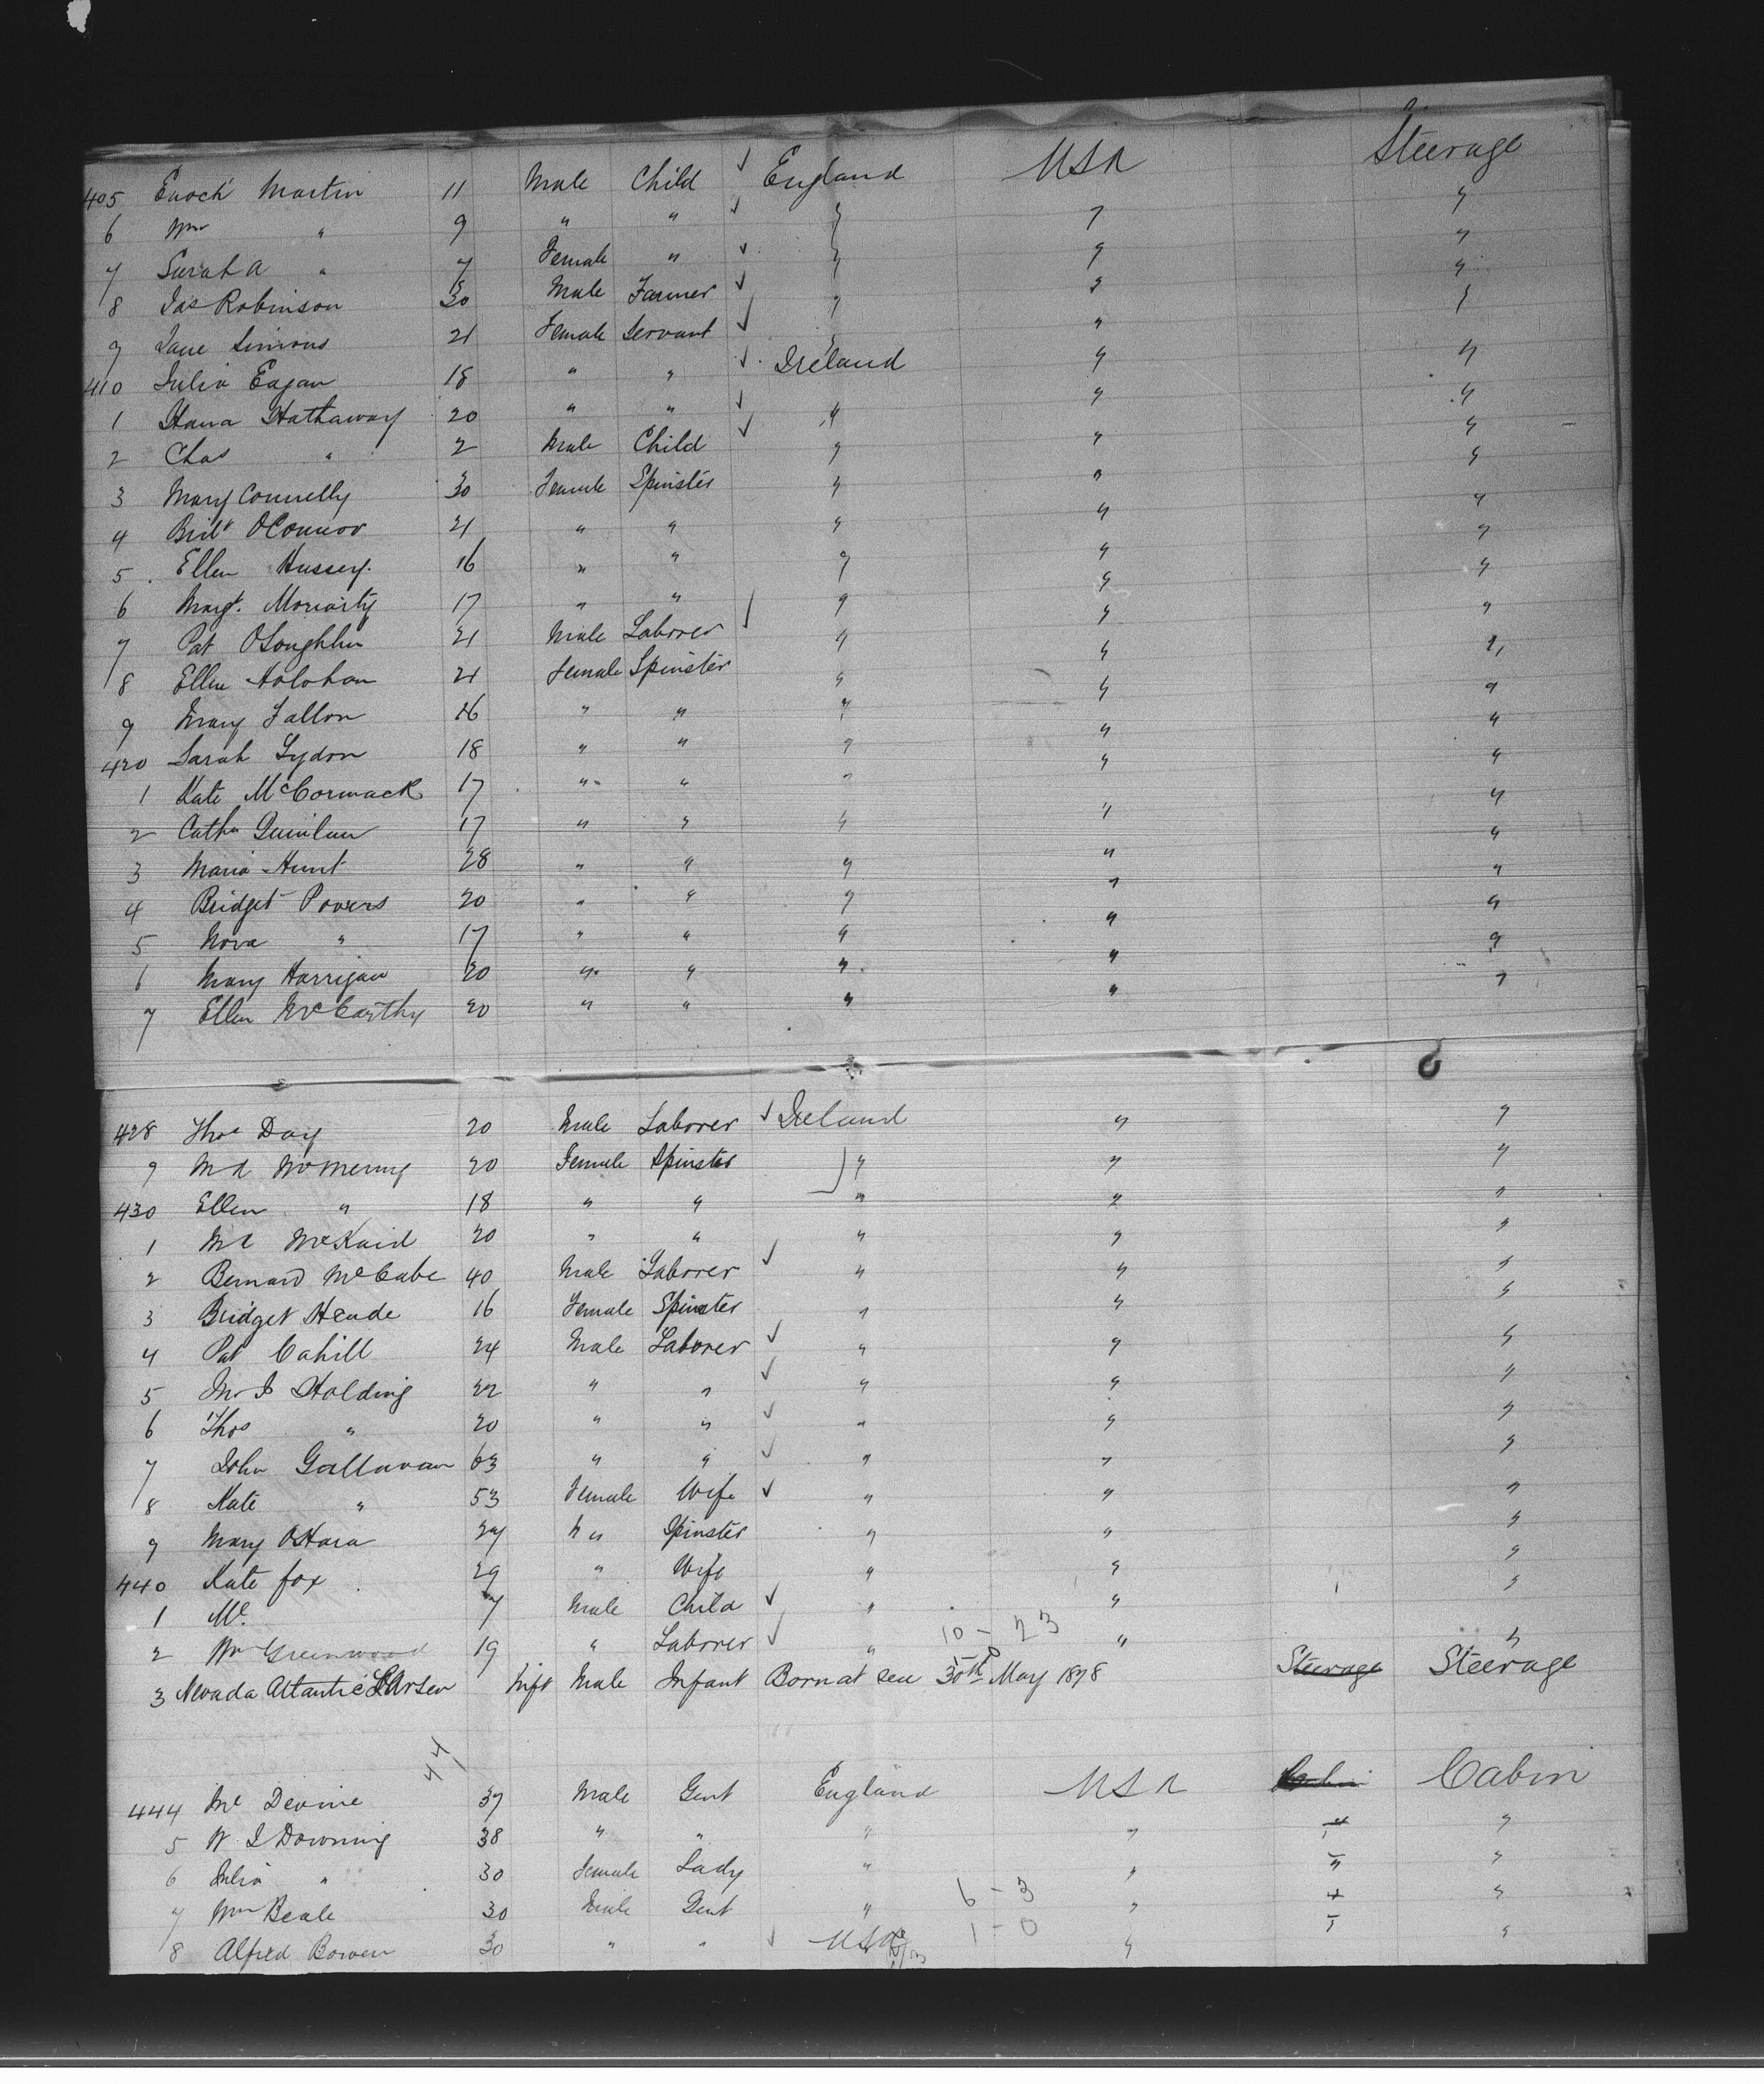 405 Enoch Martin 11 Male Child ✓ England USA Steerage
6 Wm " 9 " " ✓ " " "
7 Sarah A " 7 Female " ✓ " " "
8 Jas Robinson 30 Male Farmer ✓ " " "
9 Jane Simons 21 Female Servant ✓ " " "
410 Julia Eagan 18 " " ✓ Ireland " "
1 Hana Hathaway 20 " " ✓ " " "
2 Chas " 2 Male Child ✓ " " "
3 Mary Connelly 30 Female Spinster " " "
4 Bridt OConnor 21 " " " " "
5 Ellen Hussey 16 " " " " "
6 Margt. Moriarty 17 " " " " "
7 Pat OLoughlin 21 Male Laborer ✓ " " "
8 Ellen Holohan 21 Female Spinster " " "
9 Mary Fallon 16 " " " " "
420 Sarah Lydon 18 " " " " "
1 Kate McCormack 17 " " " " "
2 Cathn Quinlan 17 " " " " "
3 Maria Hunt 28 " " " " "
4 Bridget Powers 20 " " " " "
5 Nora " 17 " " " " "
6 Mary Harrigan 20 " " " " "
7 Ellen McCarthy 20 " " " " "
428 Thos Day 20 Male Laborer ✓ Ireland " "
9 20 Female Spinster " " "
430 Ellen " 18 " " " " "
1 20 " " " " "
2 Bernard McCabe 40 Male Laborer ✓ " " "
3 Bridget Heade 16 Female Spinster " " "
4 Pat Cahill 24 Male Laborer ✓ " " "
5 Holding 22 " " ✓ " " "
6 Thos " 20 " " ✓ " " "
7 John Gallavan 63 " " ✓ " " "
8 Kate " 53 Female Wife ✓ " " "
9 Mary OHara 27 " Spinster " " "
440 Kate fox 29 " Wife " " "
1 7 Male Child ✓ " " "
2 Wm Greenwood 19 " Laborer ✓ " 10 - 23 " "
3 Nevada Atlantic Larsen Inft Male Infant Born at sea 30th May 1878 Steerage Steerage
444 Devine 37 Male Gent England USA Cabin Cabin
5 W J Downing 38 " " " " " "
6 Julia " 30 Female Lady " " " "
7 Wm Beale 30 Male Gent " 6 - 3 " " "
8 Alfred Bowen 30 " " ✓ USA 1 - 0 " " "